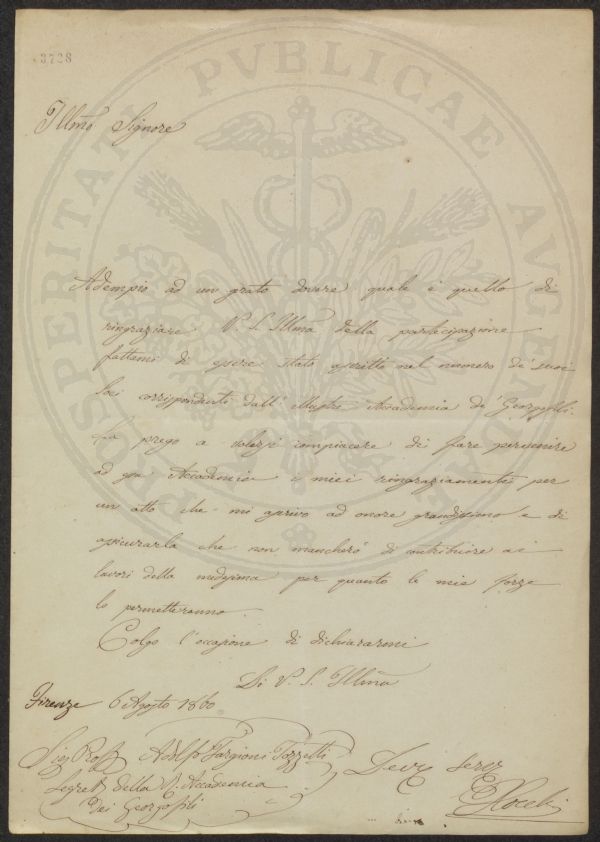 3728
PROSPERITATI PVBLICAE AVGENDAE
Illmo Signore
Adempio ad un grato dovere quale è quello di
ringraziare V. S. Illma della partecipazione
fattami di essere stato ascritto nel numero de' suoi
Soci corrispondenti dall' Accademia de' Georgofili.
La prego a volersi compiacere di fare pervenire
ad essa Accademia i miei ringraziamenti per
un atto che mi ascrivo ad onore grandissimo e di
assicurarla che non mancherò di contribuire ai
lavori della medesima per quanto le mie forze
lo permetteranno.
Colgo l'occasione di dichiararmi
Di V. S. Illma
Firenze 6 Agosto 1860
Sig Prof Adolfo Targioni Tozzetti
Segret della R. Accademia
dei Georgofili
Devo Servo